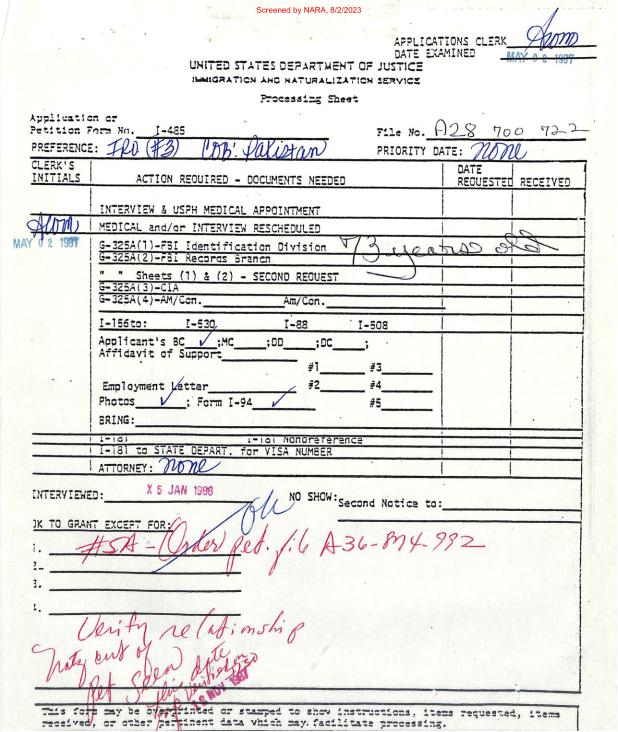 Screened by NARA, 8/2/2023
APPLICATIONS CLERK
DATE EXAMINED MAY 02 1987
UNITED STATES DEPARTMENT OF JUSTICE
IMMIGRATION AND NATURALIZATION SERVICE
Processing Sheet
Application or
Petition Form No. I-485 File No. A28 700 722
PREFERENCE: IRO (#3) COB: Pakistan PRIORITY DATE: none
CLERK'S
INITIALS ACTION REQUIRED - DOCUMENTS NEEDED DATE
REQUESTED RECEIVED
INTERVIEW & USPH MEDICAL APPOINTMENT
MEDICAL and/or INTERVIEW RESCHEDULED
MAY 02 1987
G-325A(1)-FBI Identification Division 73 years old
G-325A(2)-FBI Records Branch
" " Sheets (1) & (2) - SECOND REQUEST
G-325A(3)-CIA
G-325A(4)-AM/Con. Am/Con.
I-156to: I-530 I-88 I-508
Applicant's BC ✓ ;MC ;DD ;DC ;
Affidavit of Support
#1 #3
Employment Letter #2 #4
Photos ✓ ; Form I-94 ✓ #5
BRING:
I-181 I-181 Nonpreference
I-181 to STATE DEPART. for VISA NUMBER
ATTORNEY: none
INTERVIEWED: X 5 JAN 1988 ok NO SHOW: Second Notice to:
OK TO GRANT EXCEPT FOR:
1. #5A - Order pet. file A36-874-992
2.
3.
4.
Verify relationship
out of
pet seen this date
12 NOV 1987
This form may be overprinted or stamped to show instructions, items requested, items
received, or other pertinent data which may facilitate processing.